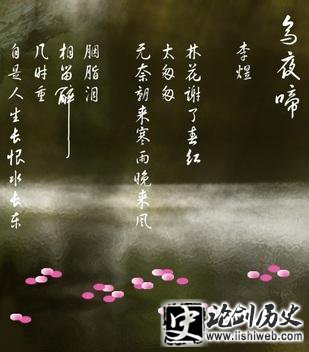 乌夜啼
李煜
林花谢了春红
太匆匆
无奈朝来寒雨晚来风
胭脂泪
相留醉
几时重
自是人生长恨水长东
史
论剑历史
www.lishiweb.com